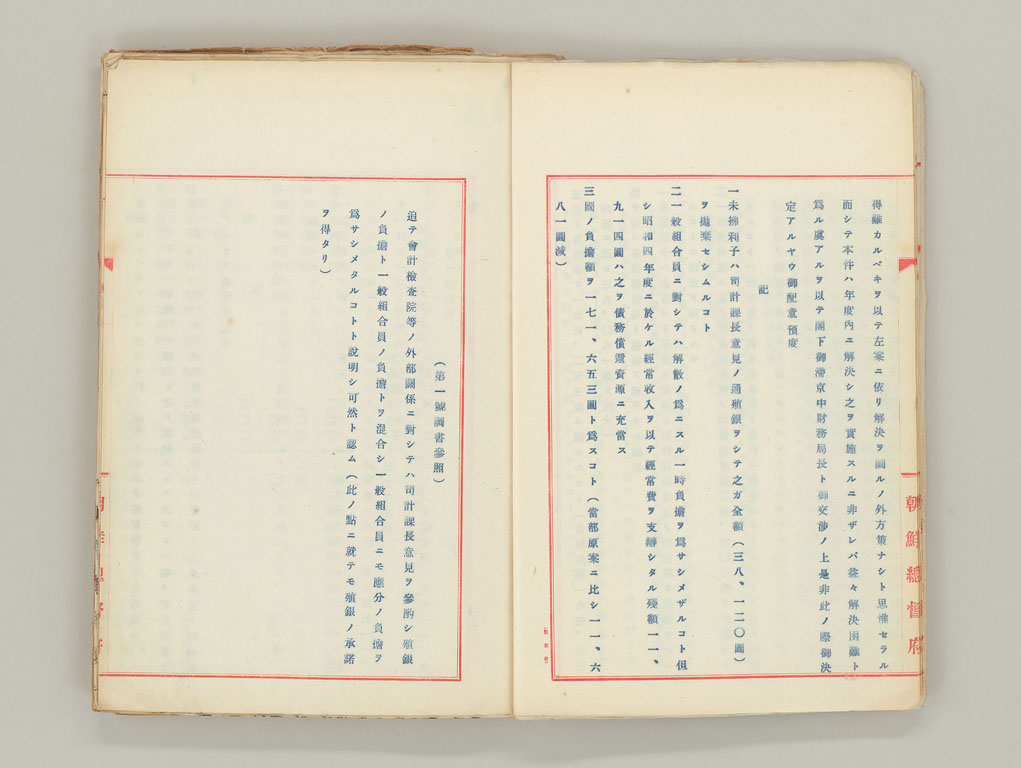 得難カルベキヲ以テ左案ニ依リ解決ヲ圖ルノ外方策ナシト思惟セラル
而シテ本件ハ年度內ニ解決シ之ヲ實施スルニ非ザレバ益々解決困難ト
爲ル處アルヲ以テ閣下御滯京中財務局長ト御交渉ノ上是非此ノ際御決
定アルヤウ御配意預度
記
一未拂利子ハ司計課長意見ノ通殖銀ヲシテ之ガ全額(三八、一二〇圓)
ヲ拋棄セシムルコト
二一般組合員ニ對シテハ解散ノ爲ニスル一時負擔ヲ爲サシメザルコト但
シ昭和四年度ニ於ケル經常收入ヲ以テ經常費ヲ支辨シタル殘額一一、
九一四圓ハ之ヲ債務償還資源ニ充當ス
三國ノ負擔額ヲ一七一、六五三圓ト爲スコト(當部原案ニ比シ一一、六
八一圓減)
朝鮮總督府
(第一號調書參照)
追テ會計檢査院等ノ外部關係ニ對シテハ司計課長意見ヲ參酌シ殖銀
ノ負擔ト一般組合員ノ負擔トヲ混合シ一般組合員ニモ應分ノ負擔ヲ
爲サシメタルコトト說明シ可然ト認ム(此ノ點ニ就テモ殖銀ノ承諾
ヲ得タリ)